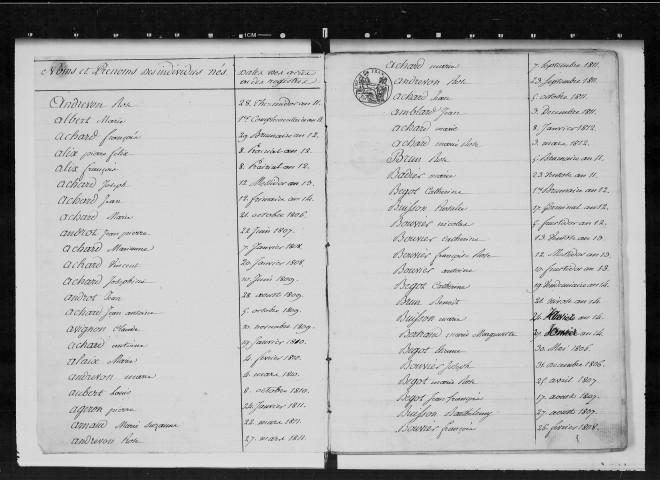 Noms et Prenoms des individus nés.
Dates des actes
ou des registres
andrevon Rose 28. Thermidor an 11.
albert Marie 1er Complémentaire an 11
achard françois 29 Brumaire an 12.
alix pierre felix 8 Prairial an 12.
alix françois 8 Prairial an 12.
achard Joseph 12 Messidor an 13.
achard Jean 12 frimaire an 14.
achard Marie 21 octobre 1806.
androt Jean pierre 22 Juin 1807.
achard Marianne 7 Janvier 1808.
achard Vincent 20 Janvier 1808.
achard Josephine 10 Juin 1809.
androt Jean 28 aoust 1809.
achard Jean antoine 5 octobre 1809.
avignon Claude 20 novembre 1809.
achard antoine 29 Janvier 1810.
alaix Marie 4 février 1810.
andrevon marie 4 mars 1810.
aubert Louis 8 octobre 1810.
ageron pierre 24 Janvier 1811.
arnaud Marie Suzanne 22 mars 1811.
andrevon Rose 27 mars 1811.
achard marie 7 Septembre 1811.
andrevon Rose 23 Septembre 1811.
achard Jean 5 octobre 1811.
amblard Jean 3 Decembre 1811.
achard marie 8 Janvier 1812.
achard marie Rose 3 mars 1812.
Brun Rose 5 Brumaire an 11.
Badier marie 23 Ventose an 11.
Begot Catherine 1er Brumaire an 12.
Buisson Rosalie 27 Germinal an 12.
Bouvier nicolas 5 fructidor an 12.
Bouvier Catherine 13 Ventose an 13.
Bouvier françoise Rose 12 Messidor an 13.
Bouvier antoine 10 fructidor an 13.
Begot Catherine 19 Vendemiaire an 14.
Brun Benoit 21 nivose an 14.
Buisson marie 24 an 14.
Bertrand marie Marguerite 30 an 14.
Begot Etienne 30 Mai 1806.
Bouvier Joseph 31 decembre 1806.
Begot marie Rose 25 avril 1807
Begot Jean françois 17 aoust 1807.
Buisson Barthélemy 27 aoust 1807.
Bouvier françois 26 fevrier 1808.